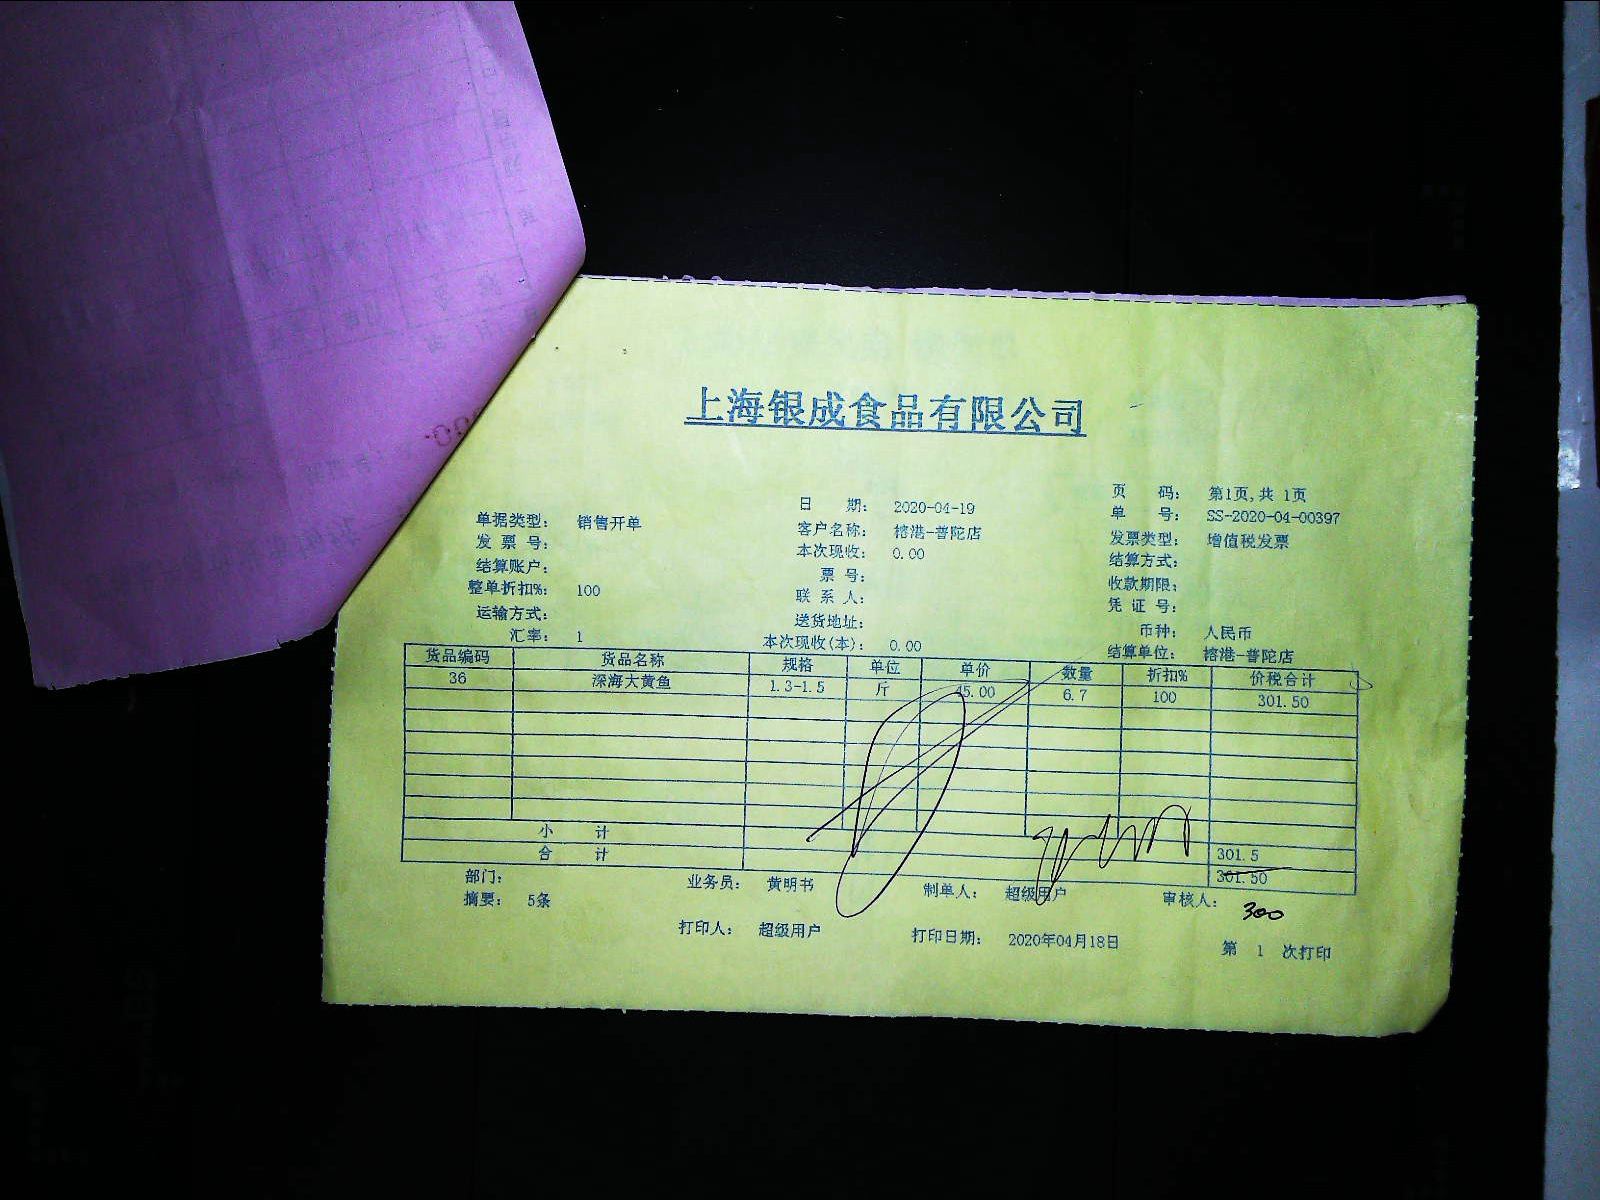 上海银成食品有限公司
页 码: 第1页,共 1页
日 期: 2020-04-19
单 号: SS-2020-04-00397
单据类型: 销售开单
客户名称: 榕港-普陀店
发票类型: 增值税发票
发 票 号:
本次现收: 0.00
结算方式:
结算账户:
票 号:
收款期限:
整单折扣%: 100
联 系 人:
凭 证 号:
运输方式:
送货地址:
币种: 人民币
汇率: 1
本次现收(本): 0.00
结算单位: 榕港-普陀店
货品编码 货品名称 规格 单位 单价 数量 折扣% 价税合计
36 深海大黄鱼 1.3-1.5 斤 45.00 6.7 100 301.50
小 计 301.5
合 计 301.50
部门: 业务员: 黄明书 制单人: 超级用户 审核人:
300
摘要: 5条
打印人: 超级用户 打印日期: 2020年04月18日 第 1 次打印